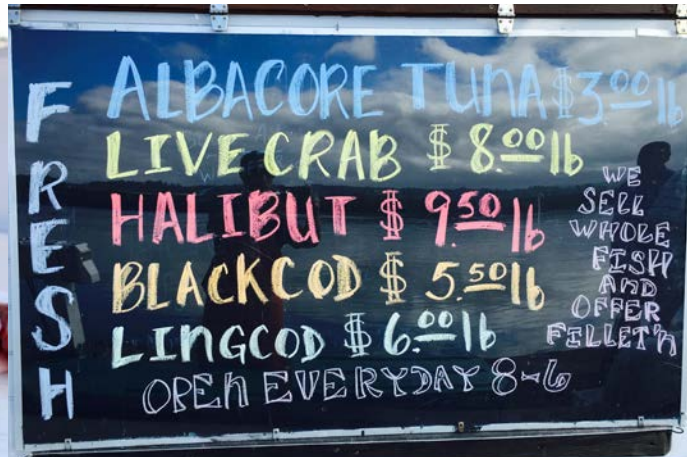 FRESH
ALBACORE TUNA $3.00 lb
LIVE CRAB $ 8.00 lb
HALIBUT $ 9.50 lb
BLACKCOD $ 5.50 lb
LINGCOD $ 6.00 lb
OPEN EVERYDAY 8-6
WE
SELL
WHOLE
FISH
AND
OFFER
FILLET'n